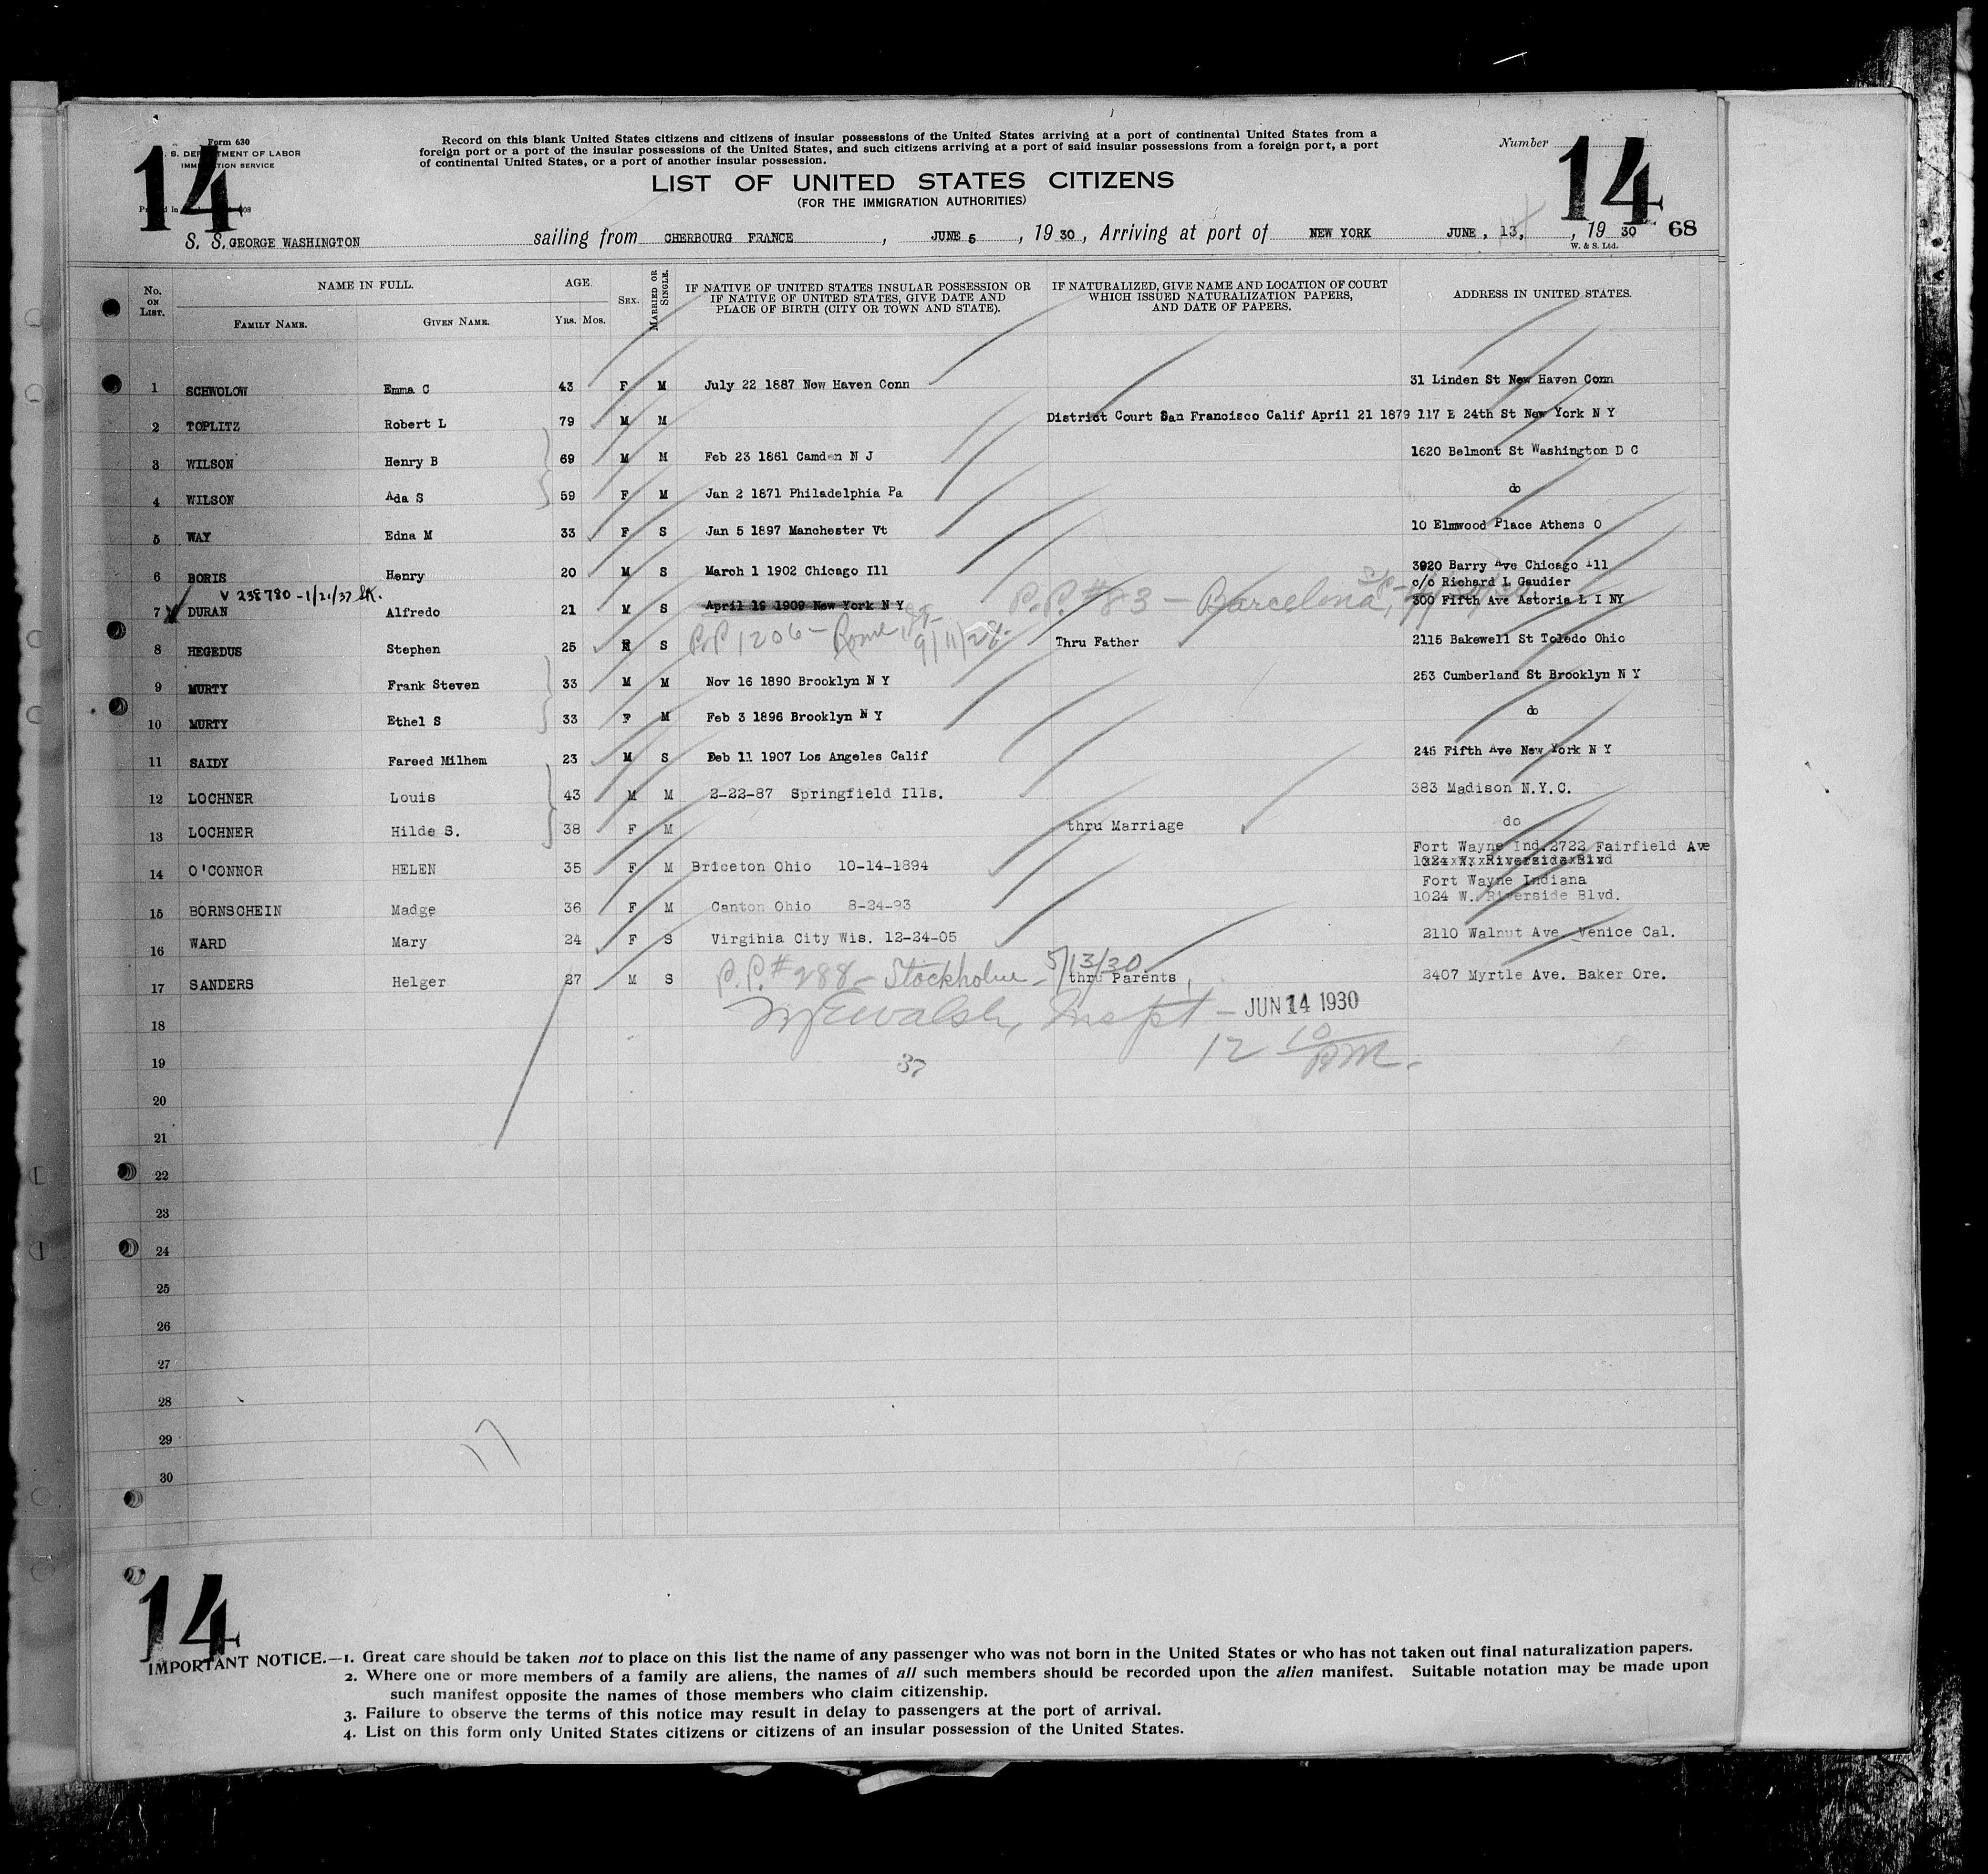 14
Form 630
S. DEPARTMENT OF LABOR
IMMIGRATION SERVICE
Record on this blank United States citizens and citizens of insular possessions of the United States arriving at a port of continental United States from a
foreign port or a port of the insular possessions of the United States, and such citizens arriving at a port of said insular possessions from a foreign port, a port
of continental United States, or a port of another insular possession.
Number 14
LIST OF UNITED STATES CITIZENS
(FOR THE IMMIGRATION AUTHORITIES)
S. S. GEORGE WASHINGTON sailing from CHERBOURG FRANCE, JUNE 5, 1930, Arriving at port of NEW YORK JUNE, 13, 1930 68
W. & S. Ltd.
No. ON LIST. NAME IN FULL. FAMILY NAME. GIVEN NAME. AGE. YRS. MOS. SEX. MARRIED OR SINGLE. IF NATIVE OF UNITED STATES INSULAR POSSESSION OR IF NATIVE OF UNITED STATES, GIVE DATE AND PLACE OF BIRTH (CITY OR TOWN AND STATE). IF NATURALIZED, GIVE NAME AND LOCATION OF COURT WHICH ISSUED NATURALIZATION PAPERS, AND DATE OF PAPERS. ADDRESS IN UNITED STATES.
1 SCHWOLOW Emma C 43 F M July 22 1887 New Haven Conn 31 Linden St New Haven Conn
2 TOPLITZ Robert L 79 M M District Court San Francisco Calif April 21 1879 117 E 24th St New York N Y
3 WILSON Henry B 69 M M Feb 23 1861 Camden N J 1620 Belmont St Washington D C
4 WILSON Ada S 59 F M Jan 2 1871 Philadelphia Pa do
5 WAY Edna M 33 F S Jan 5 1897 Manchester Vt 10 Elmwood Place Athens O
6 BORIS Henry 20 M S March 1 1902 Chicago Ill 3920 Barry Ave Chicago Ill
V 238780 - 1/21/37 c/o Richard L Gaudier
7 DURAN Alfredo 21 M S April 19 1909 New York N Y P.P. #83 - Barcelona, 300 Fifth Ave Astoria L I NY
8 HEGEDUS Stephen 25 S P.P 1206 - Rome, 9/11/28 Thru Father 2115 Bakewell St Toledo Ohio
9 MURTY Frank Steven 33 M M Nov 16 1890 Brooklyn N Y 253 Cumberland St Brooklyn N Y
10 MURTY Ethel S 33 F M Feb 3 1896 Brooklyn N Y do
11 SAIDY Fareed Milhem 23 M S Feb 11 1907 Los Angeles Calif 245 Fifth Ave New York N Y
12 LOCHNER Louis 43 M M 2-22-87 Springfield Ills. 383 Madison N.Y.C.
13 LOCHNER Hilde S. 38 F M thru Marriage do
Fort Wayne Ind. 2722 Fairfield Ave
14 O'CONNOR HELEN 35 F M Briceton Ohio 10-14-1894 1024 W. Riverside Blvd
Fort Wayne Indiana
15 BORNSCHEIN Madge 36 F M Canton Ohio 8-24-93 1024 W. Riverside Blvd.
16 WARD Mary 24 F S Virginia City Wis. 12-24-05 2110 Walnut Ave. Venice Cal.
17 SANDERS Helger 27 M S P.P. #288 - Stockholm - 5/13/30 thru Parents 2407 Myrtle Ave. Baker Ore.
18 Walsh, Inspt - JUN 14 1930
19 37 12 10 PM.
20
21
22
23
24
25
26
27
28
29 17
30
14
IMPORTANT NOTICE.—1. Great care should be taken not to place on this list the name of any passenger who was not born in the United States or who has not taken out final naturalization papers.
2. Where one or more members of a family are aliens, the names of all such members should be recorded upon the alien manifest. Suitable notation may be made upon
such manifest opposite the names of those members who claim citizenship.
3. Failure to observe the terms of this notice may result in delay to passengers at the port of arrival.
4. List on this form only United States citizens or citizens of an insular possession of the United States.